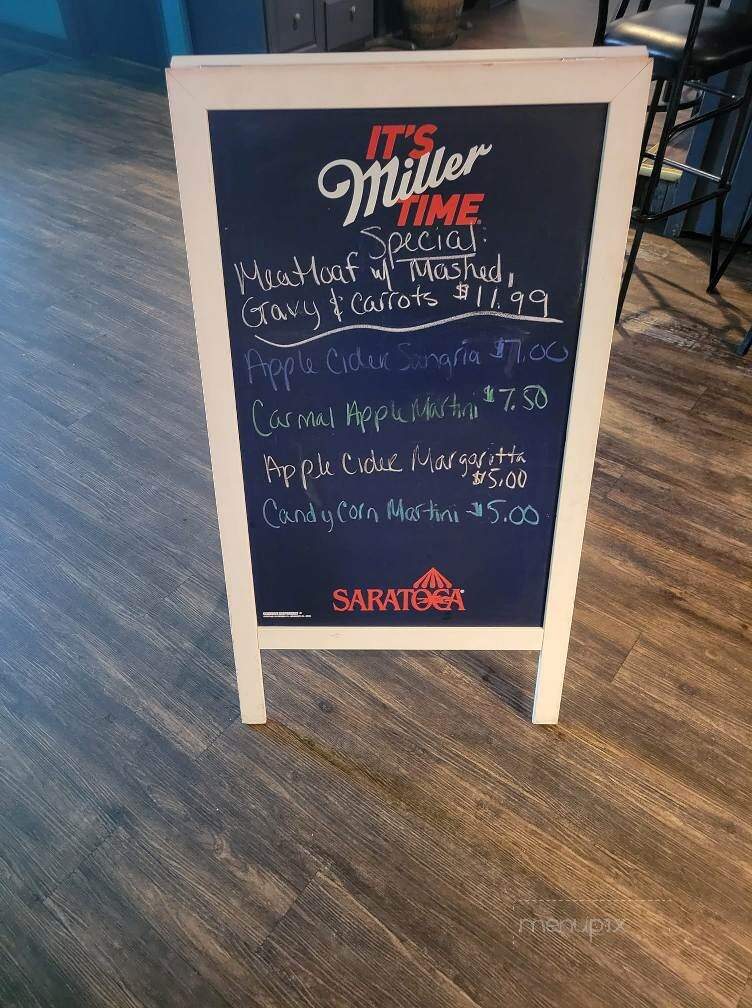 IT'S
Miller
TIME
Special:
Meatloaf w/ Mashed,
Gravy & Carrots $11.99
Apple Cider Sangria $7.00
Carmal Apple Martini $7.50
Apple Cider Margaritta
$5.00
Candy Corn Martini $5.00
SARATOGA
menupix